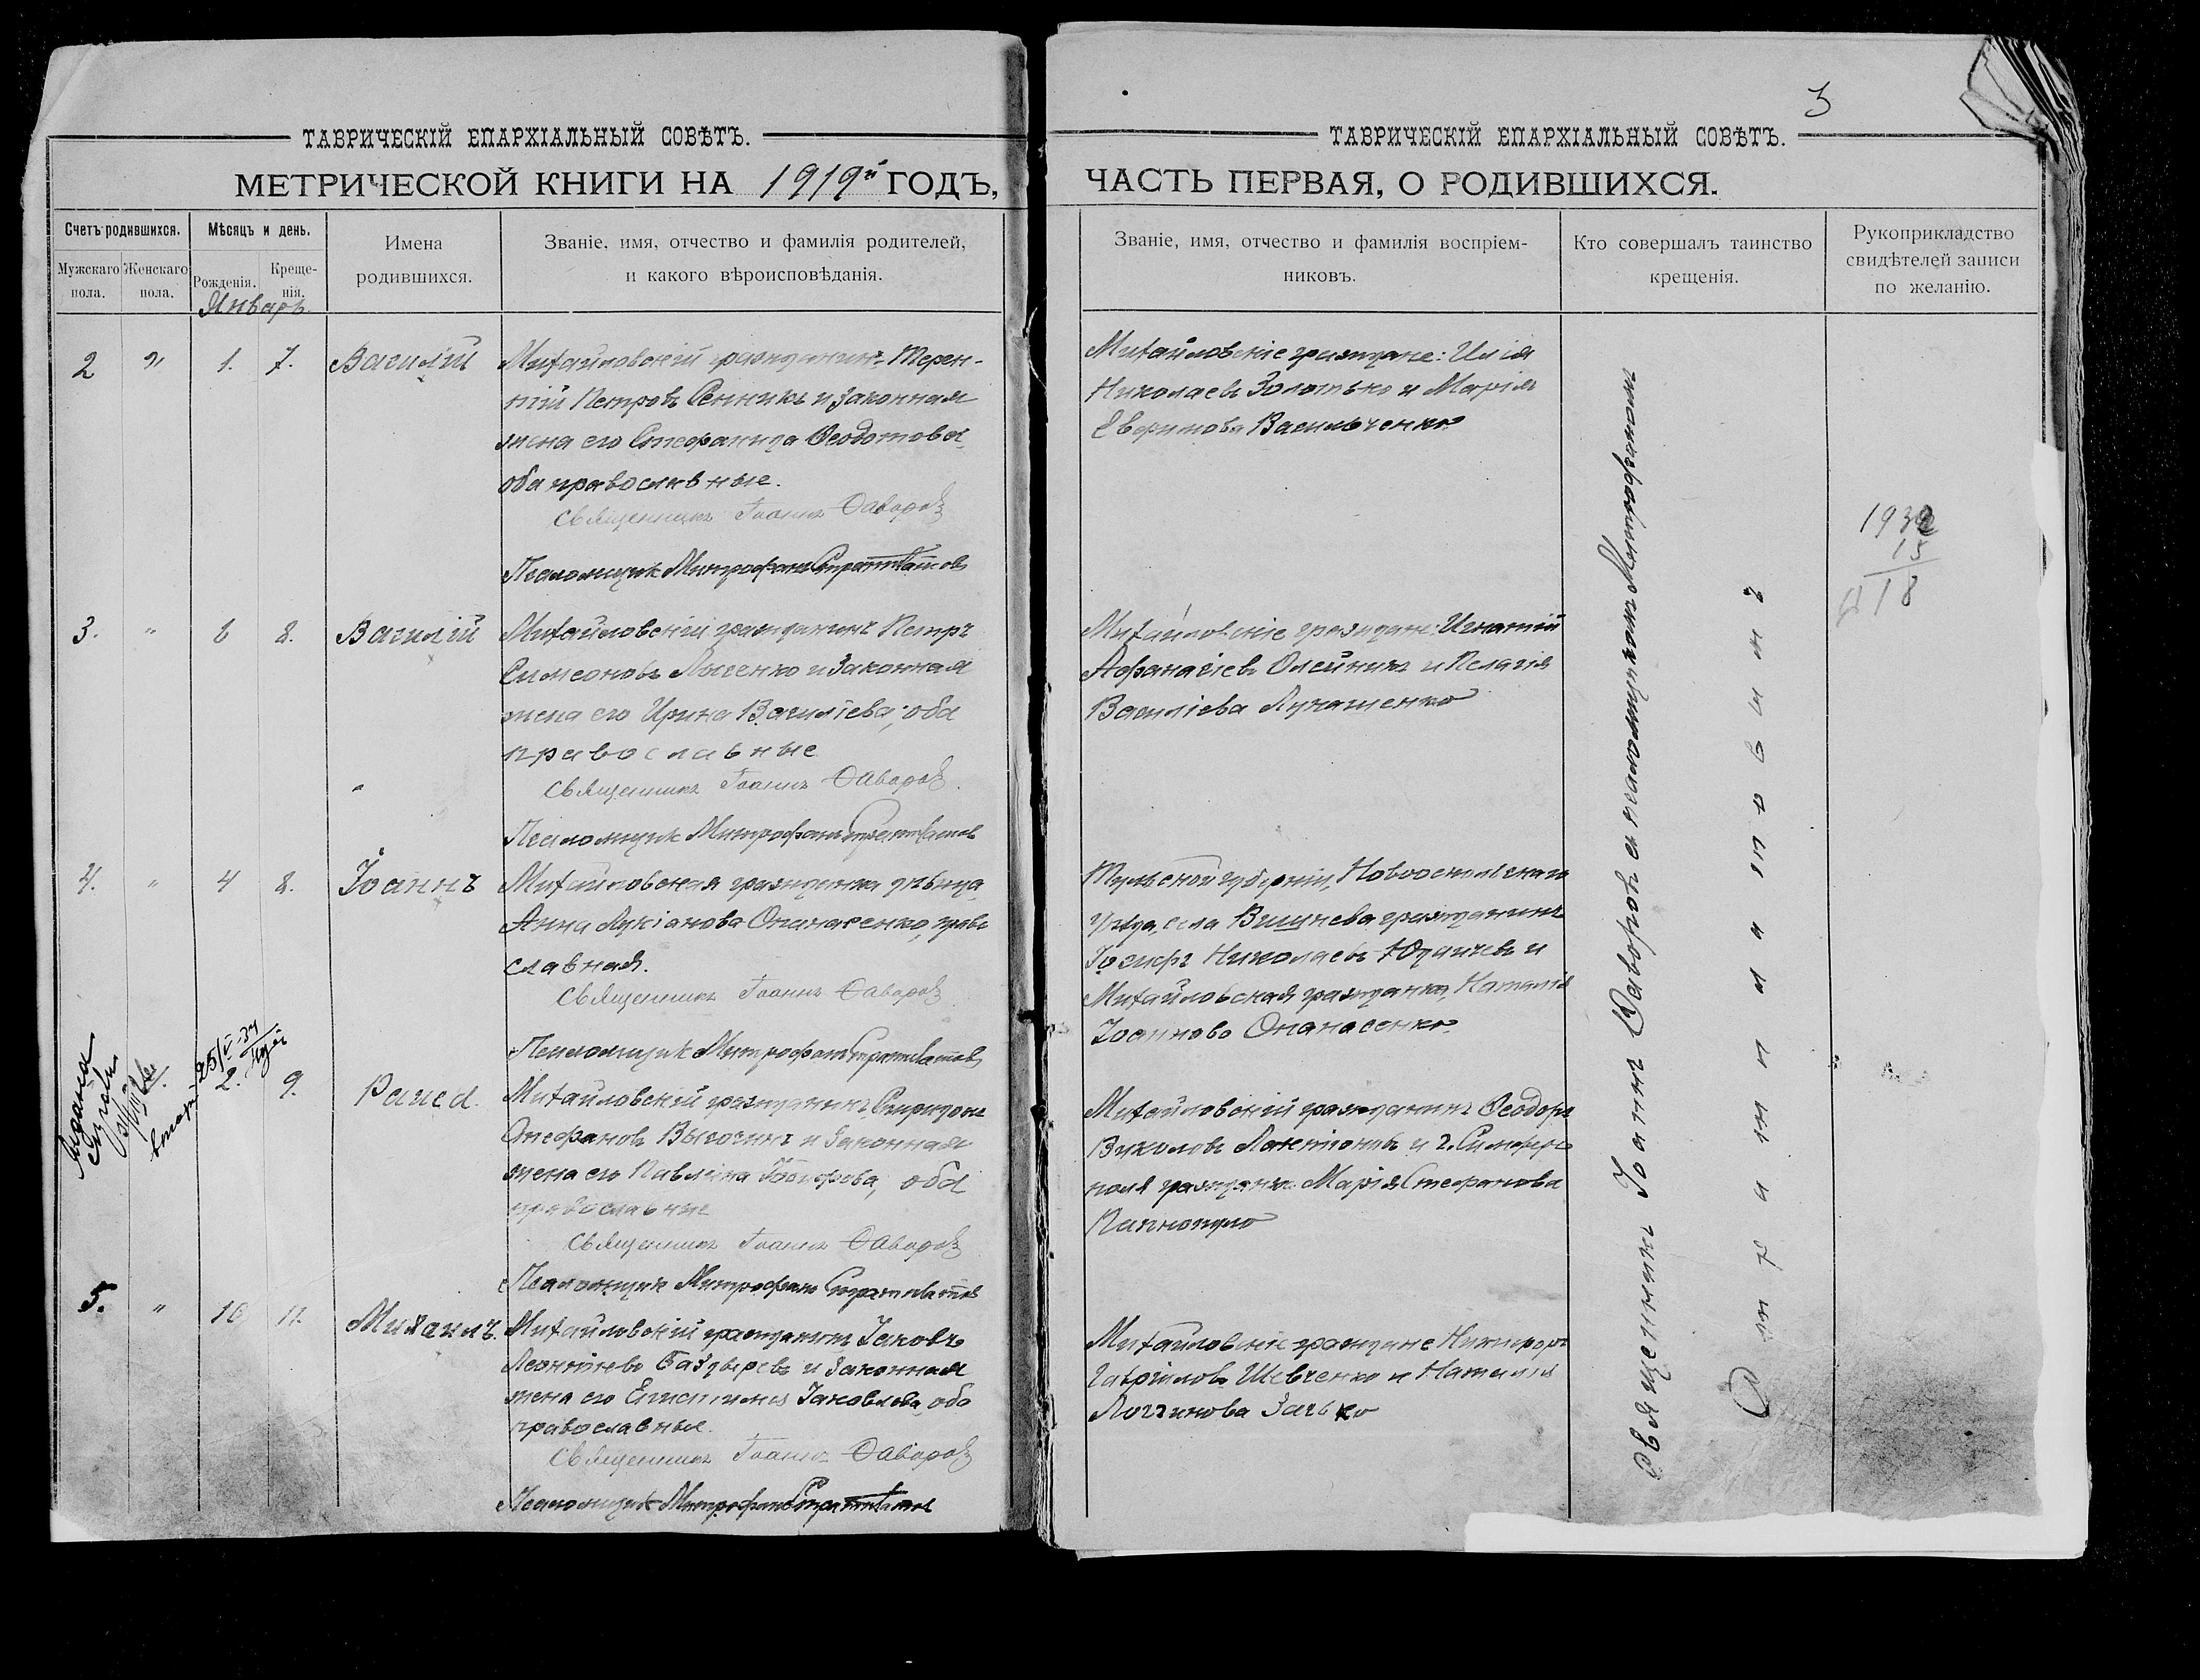 3
ТАВРИЧЕСКІЙ ЕПАРХІАЛЬНЫЙ СОВѢТЪ.
МЕТРИЧЕСКОЙ КНИГИ НА 1919й ГОДЪ,
Счетъ родившихся.
Мѣсяцъ и день.
Мужскаго пола.
Женскаго пола.
Рожденія.
Креще-
нія.
Январь.
Имена
родившихся.
Званіе, имя, отчество и фамилія родителей,
и какого вѣроисповѣданія.
2 " 1. 7. Василій
Михайловскій гражданинъ Терен-
тій Петровъ Сенникъ и законная
жена его Стефанида Ѳеодотова
оба православные.
Священникъ Іоаннъ Фаворовъ
Псаломщик Митрофан
3. " 8. Василій
Михайловскій гражданинъ Петръ
Симеоновъ Лысенко и законная
жена его Ирина Василіева, оба
православные
Священникъ Іоаннъ Фаворовъ
Псаломщик Митрофан
4. " 4 8. Іоаннъ
Михайловская гражданка дѣвица
Анна Лукіанова Опанасенко, право
славная.
Священникъ Іоаннъ Фаворовъ
Псаломщик Митрофан
2. 9. Раиса
Михайловскій гражданинъ Спиридонъ
Стефановъ Высочинъ и законная
жена его Павлина оба
православные
Священникъ Іоаннъ Фаворовъ
Псаломщик Митрофан
5. " 10 11. Михаилъ.
Михайловскій гражданинъ Іаковъ
Леонтіевъ и законная
жена его Іаковлева, оба
православные.
Священникъ Іоаннъ Фаворовъ
Псаломщик Митрофан
ТАВРИЧЕСКІЙ ЕПАРХІАЛЬНЫЙ СОВѢТЪ.
ЧАСТЬ ПЕРВАЯ, О РОДИВШИХСЯ.
Званіе, имя, отчество и фамилія воспріем-
никовъ.
Кто совершалъ таинство
крещенія.
Рукоприкладство
свидѣтелей записи
по желанію.
Михайловскіе граждане: Илія
Николаевъ Золотько и Марія
Евфимова Васильченко
Михайловскіе граждане: Игнатій
Афанасіевъ Олейникъ и Пелагія
Василіева Лукашенко
Тульской губерніи,
уѣзда, села Вишнева гражданинъ
Іосифъ Николаевъ и
Михайловская гражданка, Наталія
Іоаннова Опанасенко
Михайловскій гражданинъ Ѳеодоръ
Вуколовъ и г. Симферо
поля гражданка Марія Стефанова
Михайловскіе граждане Никифоръ
Гавріиловъ Шевченко и Наталія
Логгинова
Священникъ Іоаннъ Фаворовъ съ псаломщикомъ Митрофаномъ
1932
15
18